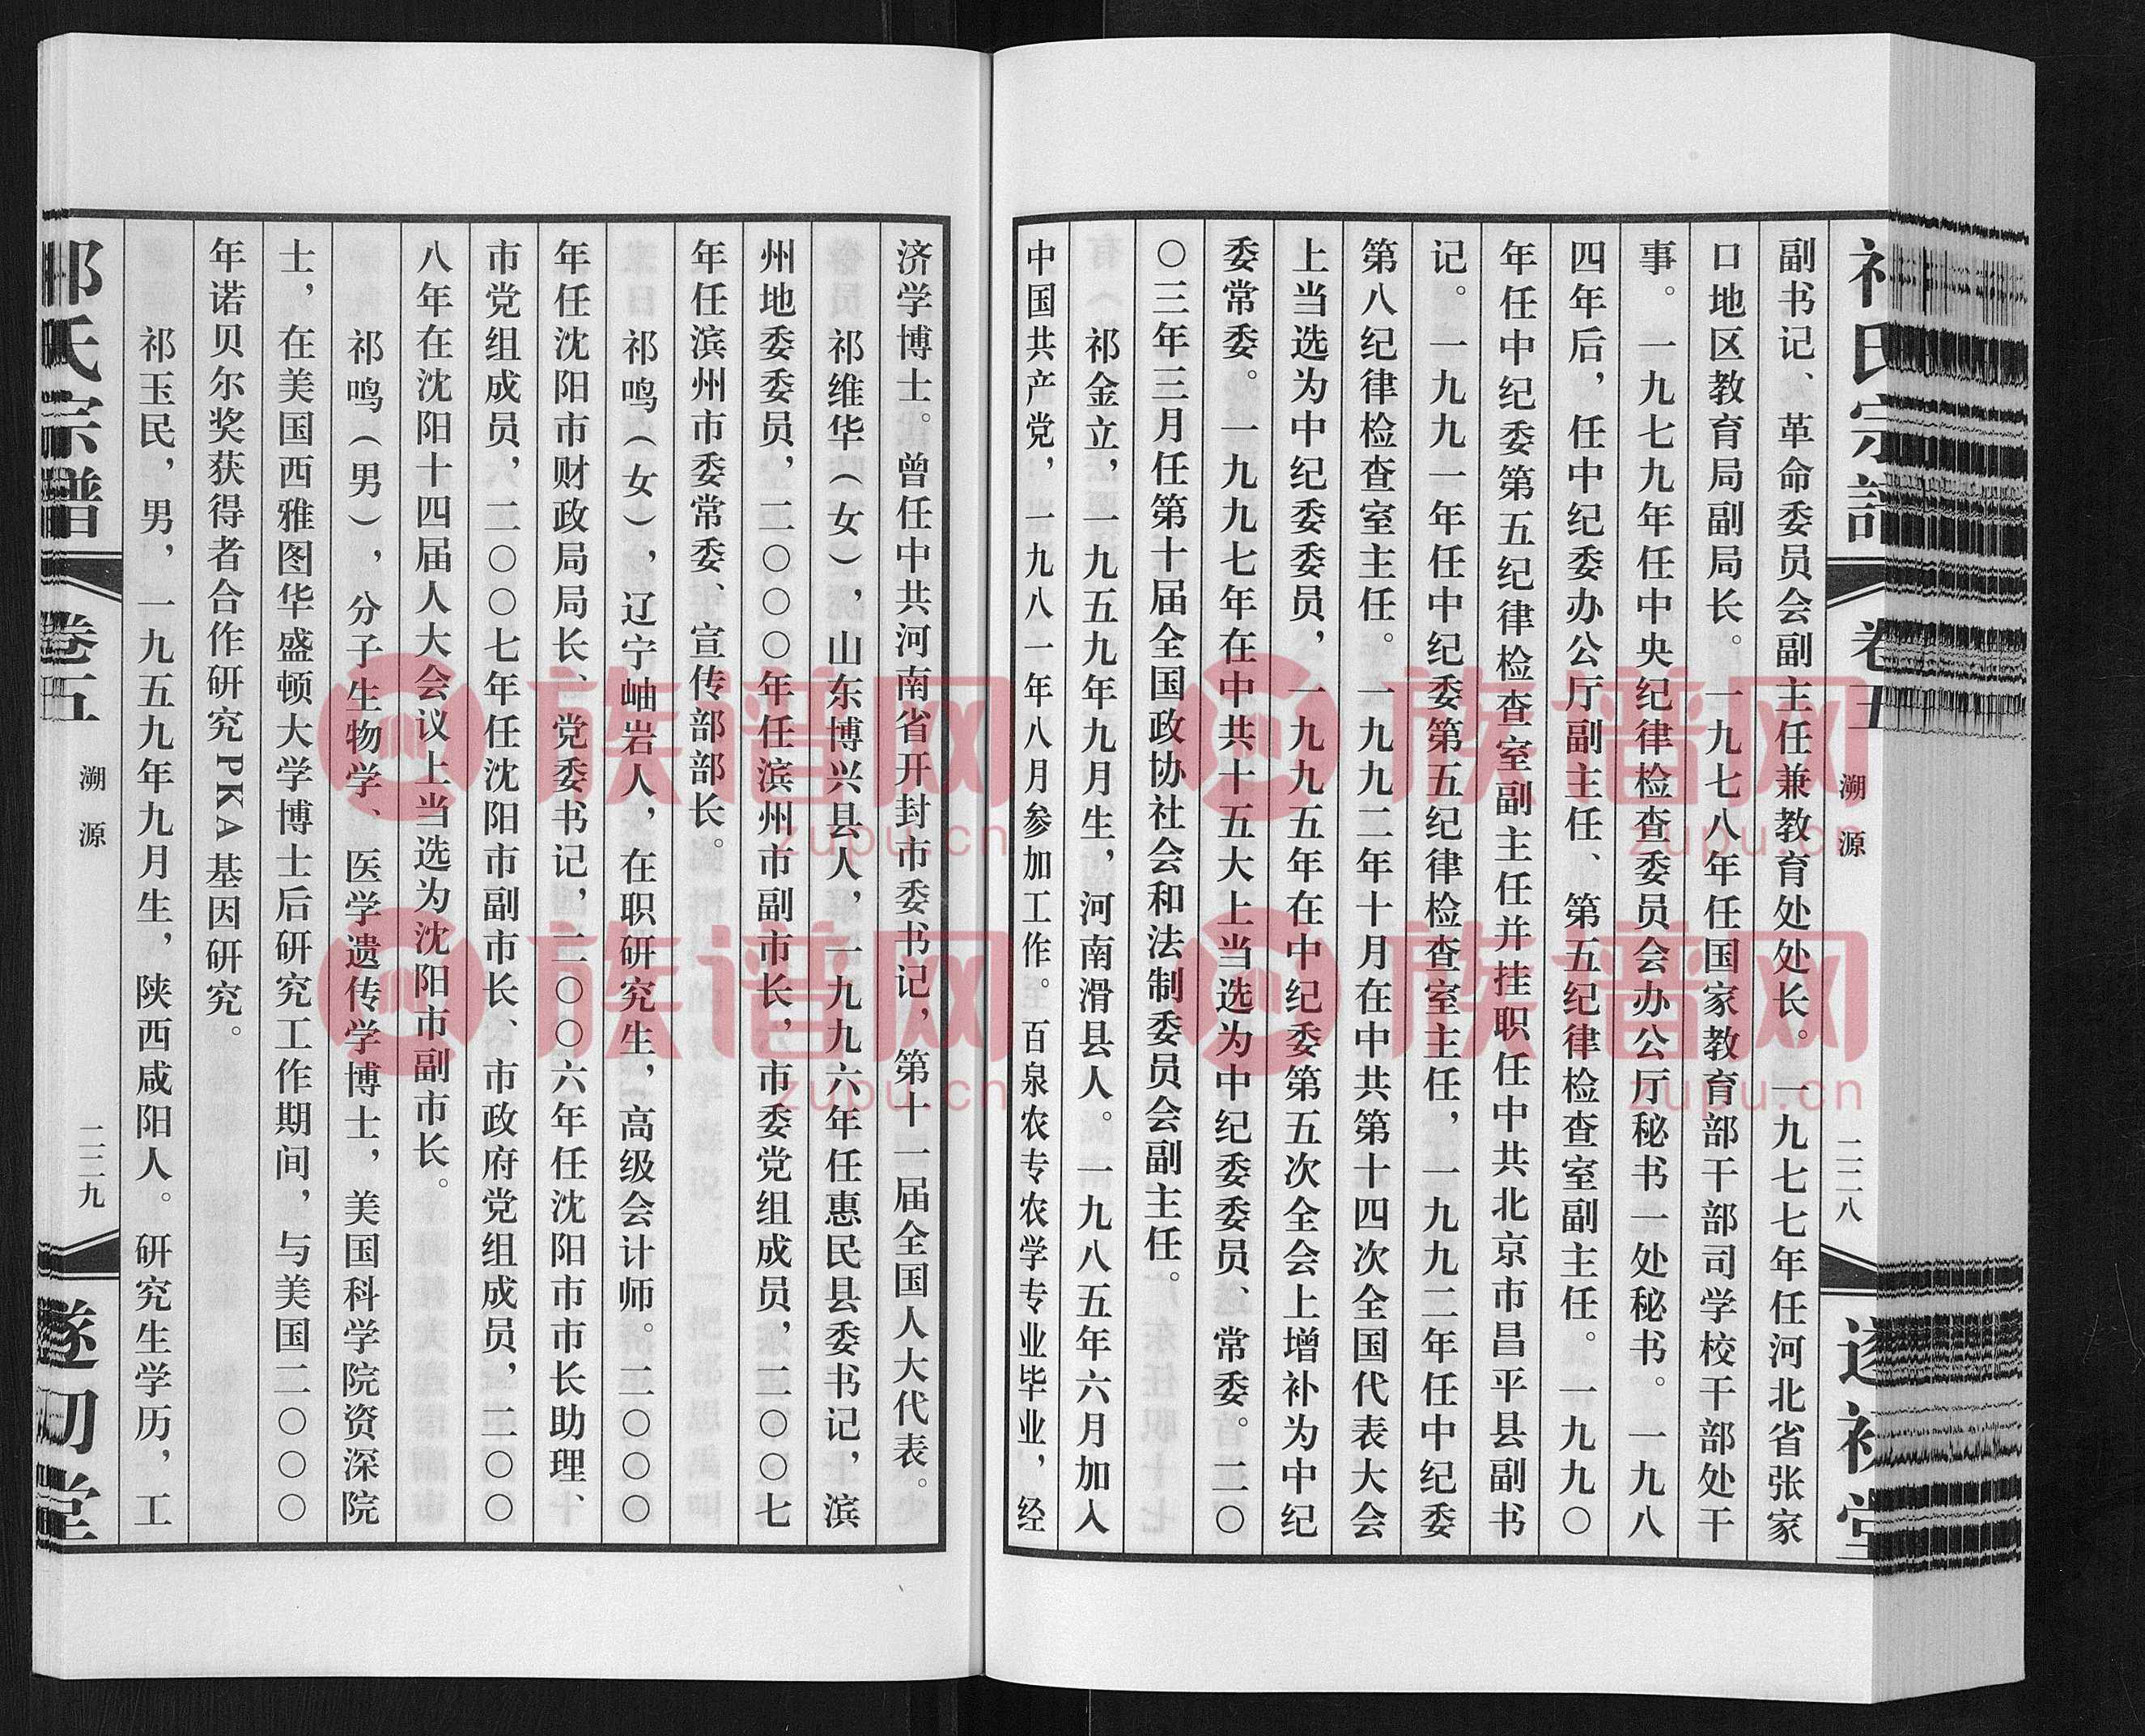 祁氏宗譜
卷五
溯源
二二八
遂初堂
副书记、革命委员会副主任兼教育处处长。一九七七年任河北省张家
口地区教育局副局长。一九七八年任国家教育部干部司学校干部处干
事。一九七九年任中央纪律检查委员会办公厅秘书一处秘书。一九八
四年后，任中纪委办公厅副主任、第五纪律检查室副主任。一九九〇
年任中纪委第五纪律检查室副主任并挂职任中共北京市昌平县副书
记。一九九一年任中纪委第五纪律检查室主任，一九九二年任中纪委
第八纪律检查室主任。一九九二年十月在中共第十四次全国代表大会
上当选为中纪委委员，一九九五年在中纪委第五次全会上增补为中纪
委常委。一九九七年在中共十五大上当选为中纪委委员、常委。二〇
〇三年三月任第十届全国政协社会和法制委员会副主任。
祁金立，一九五九年九月生，河南滑县人。一九八五年六月加入
中国共产党，一九八一年八月参加工作。百泉农专农学专业毕业，经
济学博士。曾任中共河南省开封市委书记，第十一届全国人大代表。
祁维华（女），山东博兴县人，一九九六年任惠民县委书记，滨
州地委委员，二〇〇〇年任滨州市副市长，市委党组成员，二〇〇七
年任滨州市委常委、宣传部部长。
祁鸣（女），辽宁岫岩人，在职研究生，高级会计师。二〇〇〇
年任沈阳市财政局局长、党委书记，二〇〇六年任沈阳市市长助理、
市党组成员，二〇〇七年任沈阳市副市长、市政府党组成员，二〇〇
八年在沈阳十四届人大会议上当选为沈阳市副市长。
祁鸣（男），分子生物学、医学遗传学博士，美国科学院资深院
士，在美国西雅图华盛顿大学博士后研究工作期间，与美国二〇〇〇
年诺贝尔奖获得者合作研究PKA基因研究。
祁玉民，男，一九五九年九月生，陕西咸阳人。研究生学历，工
祁氏宗譜
卷五
溯源
二二九
遂初堂
族谱网
zupu.cn
族谱网
zupu.cn
族谱网
zupu.cn
族谱网
zupu.cn